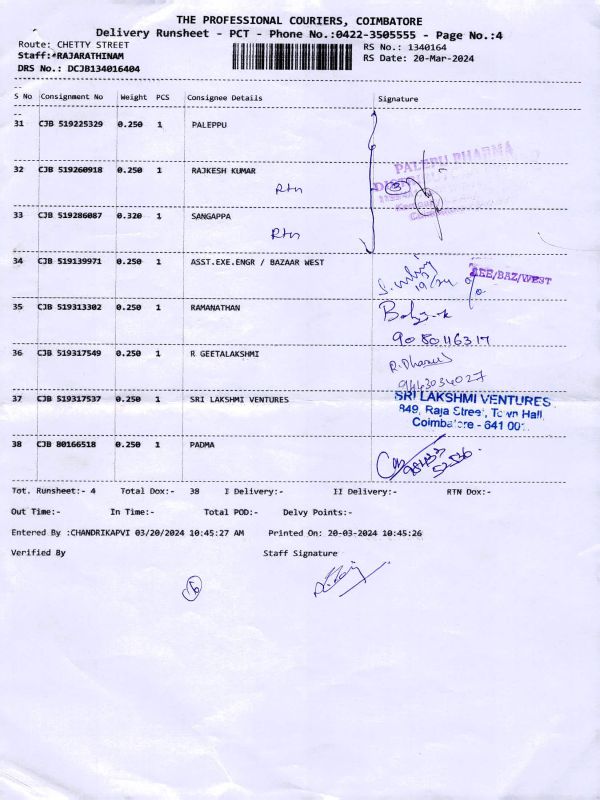 THE PROFESSIONAL COURIERS, COIMBATORE
Delivery Runsheet - PCT - Phone No.:0422-3505555 - Page No.:4
Route: CHETTY STREET
RS No.: 1340164
Staff:*RAJARATHINAM
RS Date: 20-Mar-2024
DRS No.: DCJB134016404
S No Consignment No Weight PCS Consignee Details Signature
31 CJB 519225329 0.250 1 PALEPPU
32 CJB 519260918 0.250 1 RAJKESH KUMAR
PALEPU PHARMA
Rtn
33 CJB 519286087 0.320 1 SANGAPPA
Rtn
34 CJB 519139971 0.250 1 ASST.EXE.ENGR / BAZAAR WEST
AEE/BAZ/WEST
35 CJB 519313302 0.250 1 RAMANATHAN
36 CJB 519317549 0.250 1 R GEETALAKSHMI
9443034027
37 CJB 519317537 0.250 1 SRI LAKSHMI VENTURES
SRI LAKSHMI VENTURES
849, Raja Street, Town Hall,
Coimbatore - 641 001.
38 CJB 80166518 0.250 1 PADMA
Tot. Runsheet:- 4 Total Dox:- 38 I Delivery:- II Delivery:- RTN Dox:-
Out Time:- In Time:- Total POD:- Delvy Points:-
Entered By :CHANDRIKAPVI 03/20/2024 10:45:27 AM Printed On: 20-03-2024 10:45:26
Verified By Staff Signature